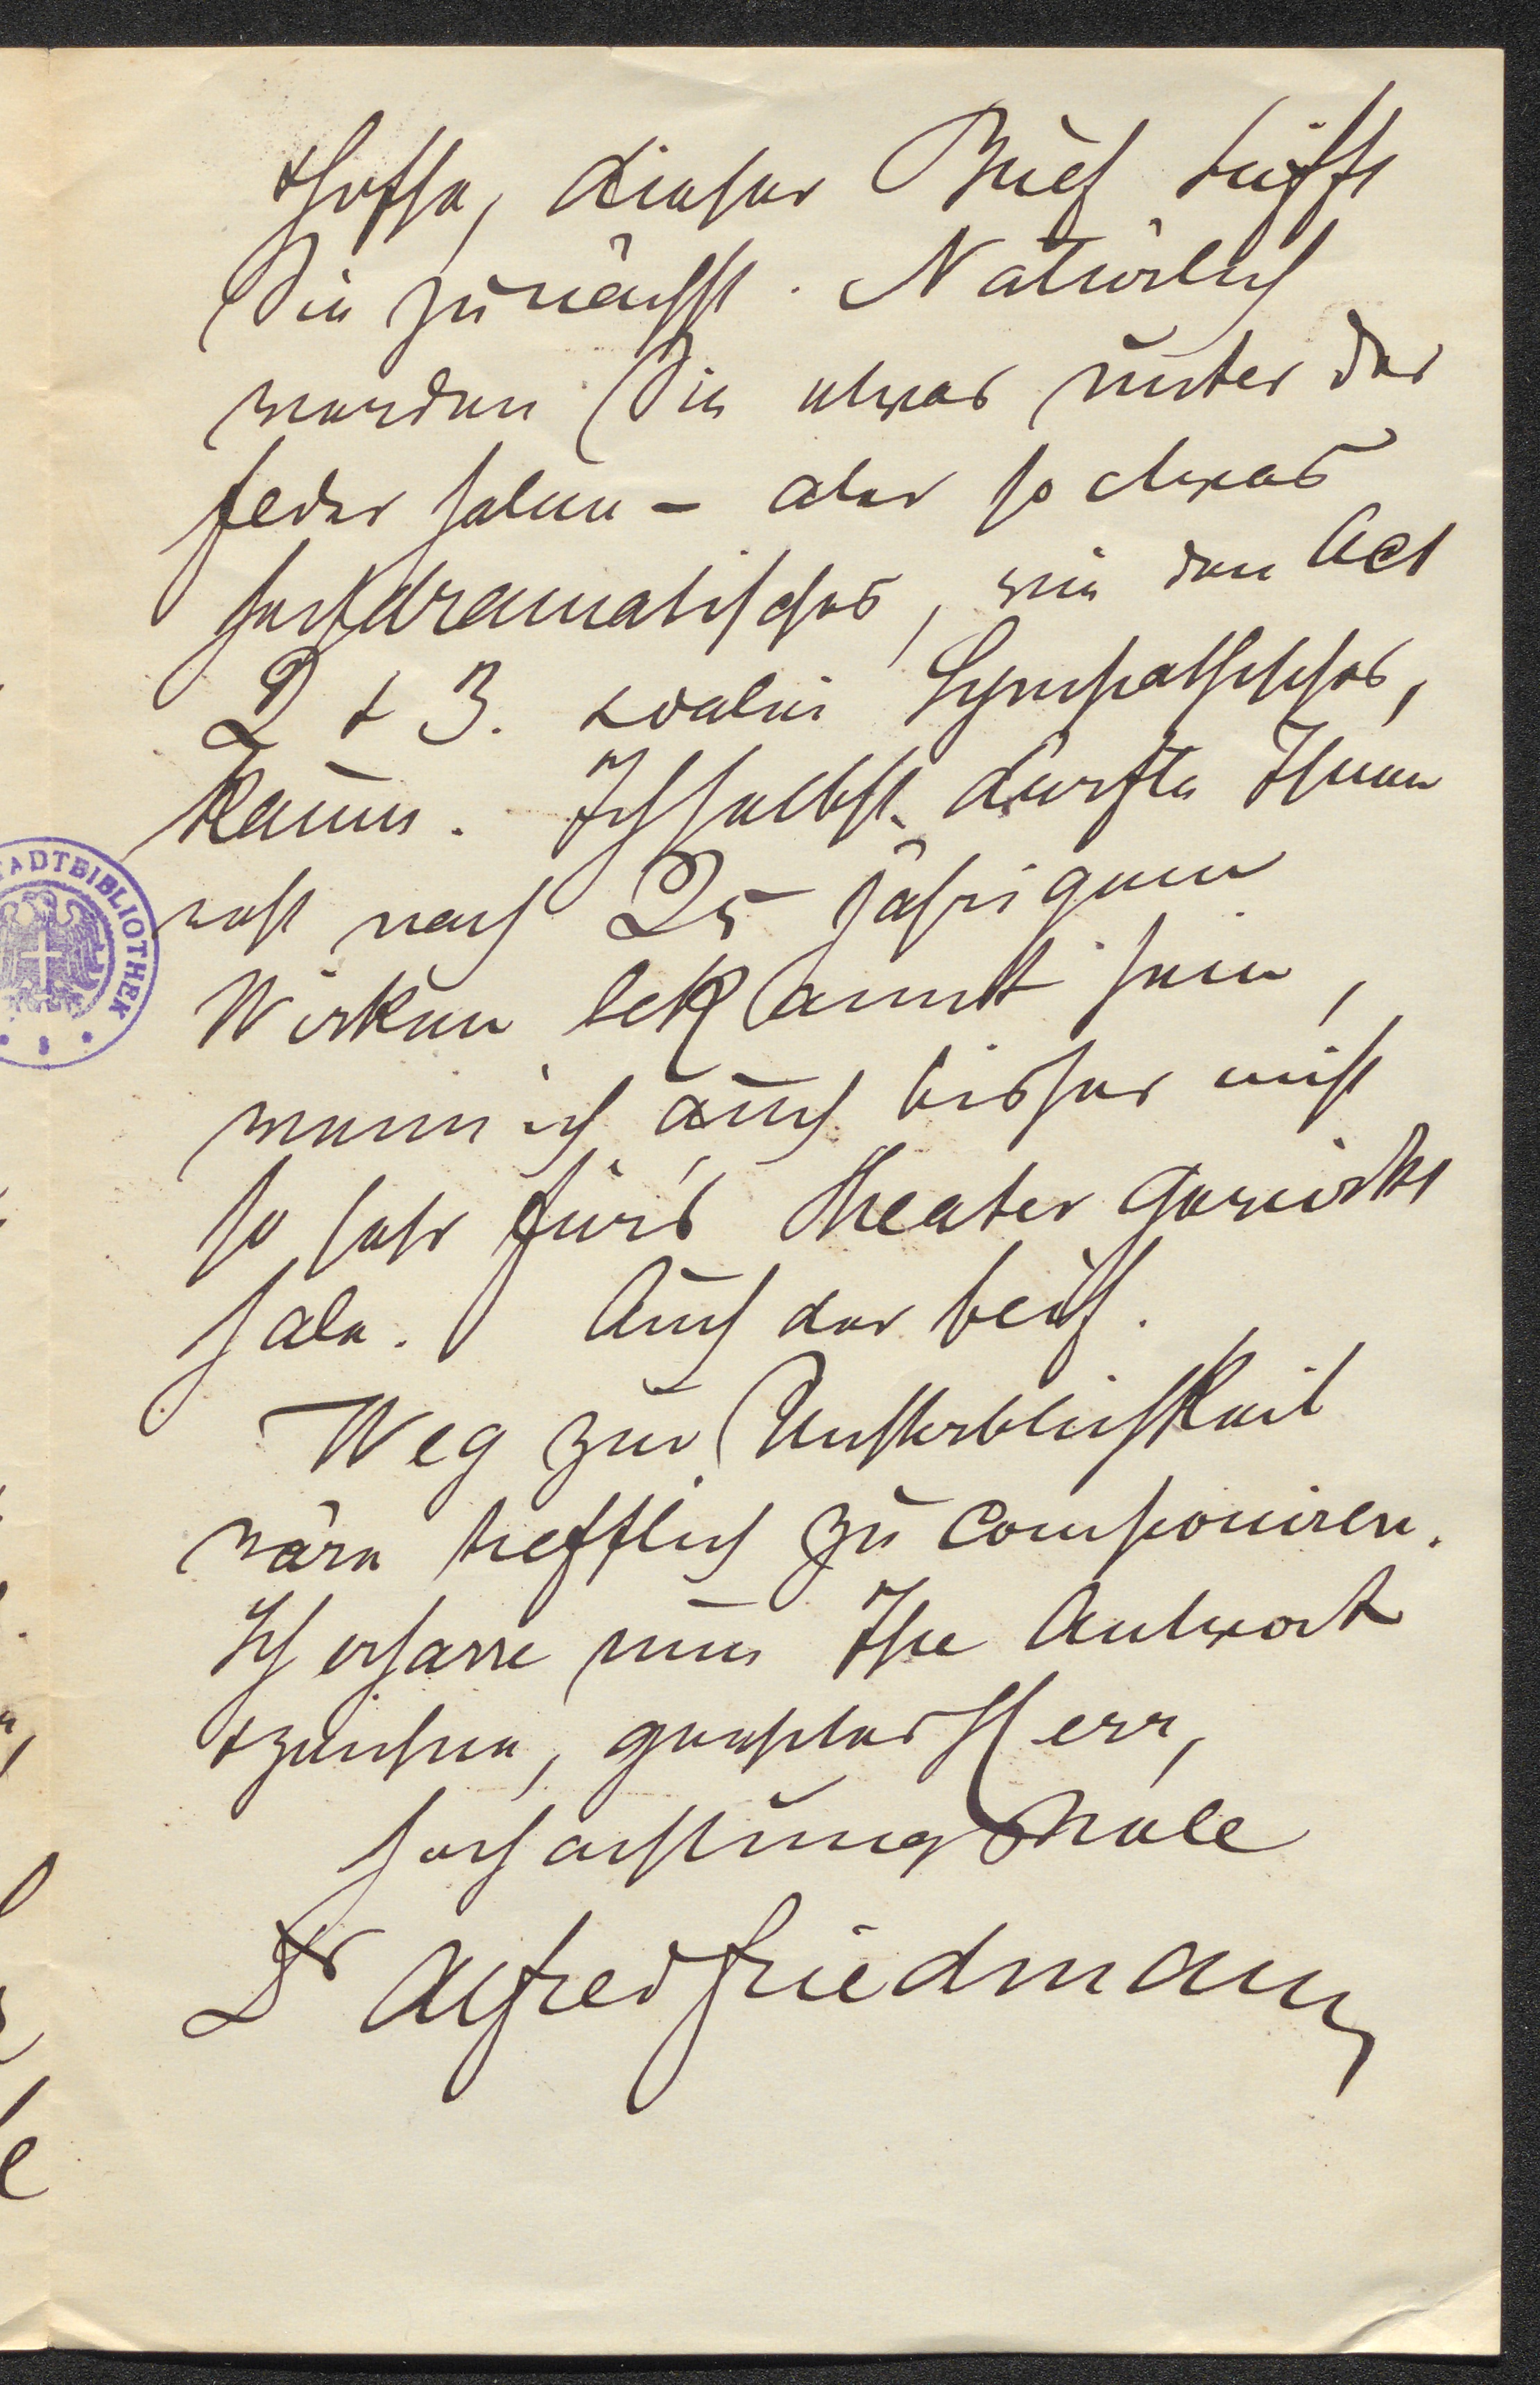 + hoffe, dieser Brief trifft
Sie zunächst. Natürlich
werden Sie etwas unter der
Feder haben – aber so etwas
hochdramatisches, wie den Act
2 + 3. + dabei Sympathisches,
kaum. Ich selbst dürfte Ihnen
wohl nach 25 jährigem
Wirken bekannt sein,
wenn ich auch bisher nicht
so sehr für's Theater gewirkt
habe. Auch der beif.
Weg zur Unsterblichkeit
wäre trefflich zu componiren.
Ich erharre nun Ihre Antwort
+ zeichne, geehrter Herr,
hochachtungsvoll
Dr Alfred Friedmann
STADTBIBLIOTHEK